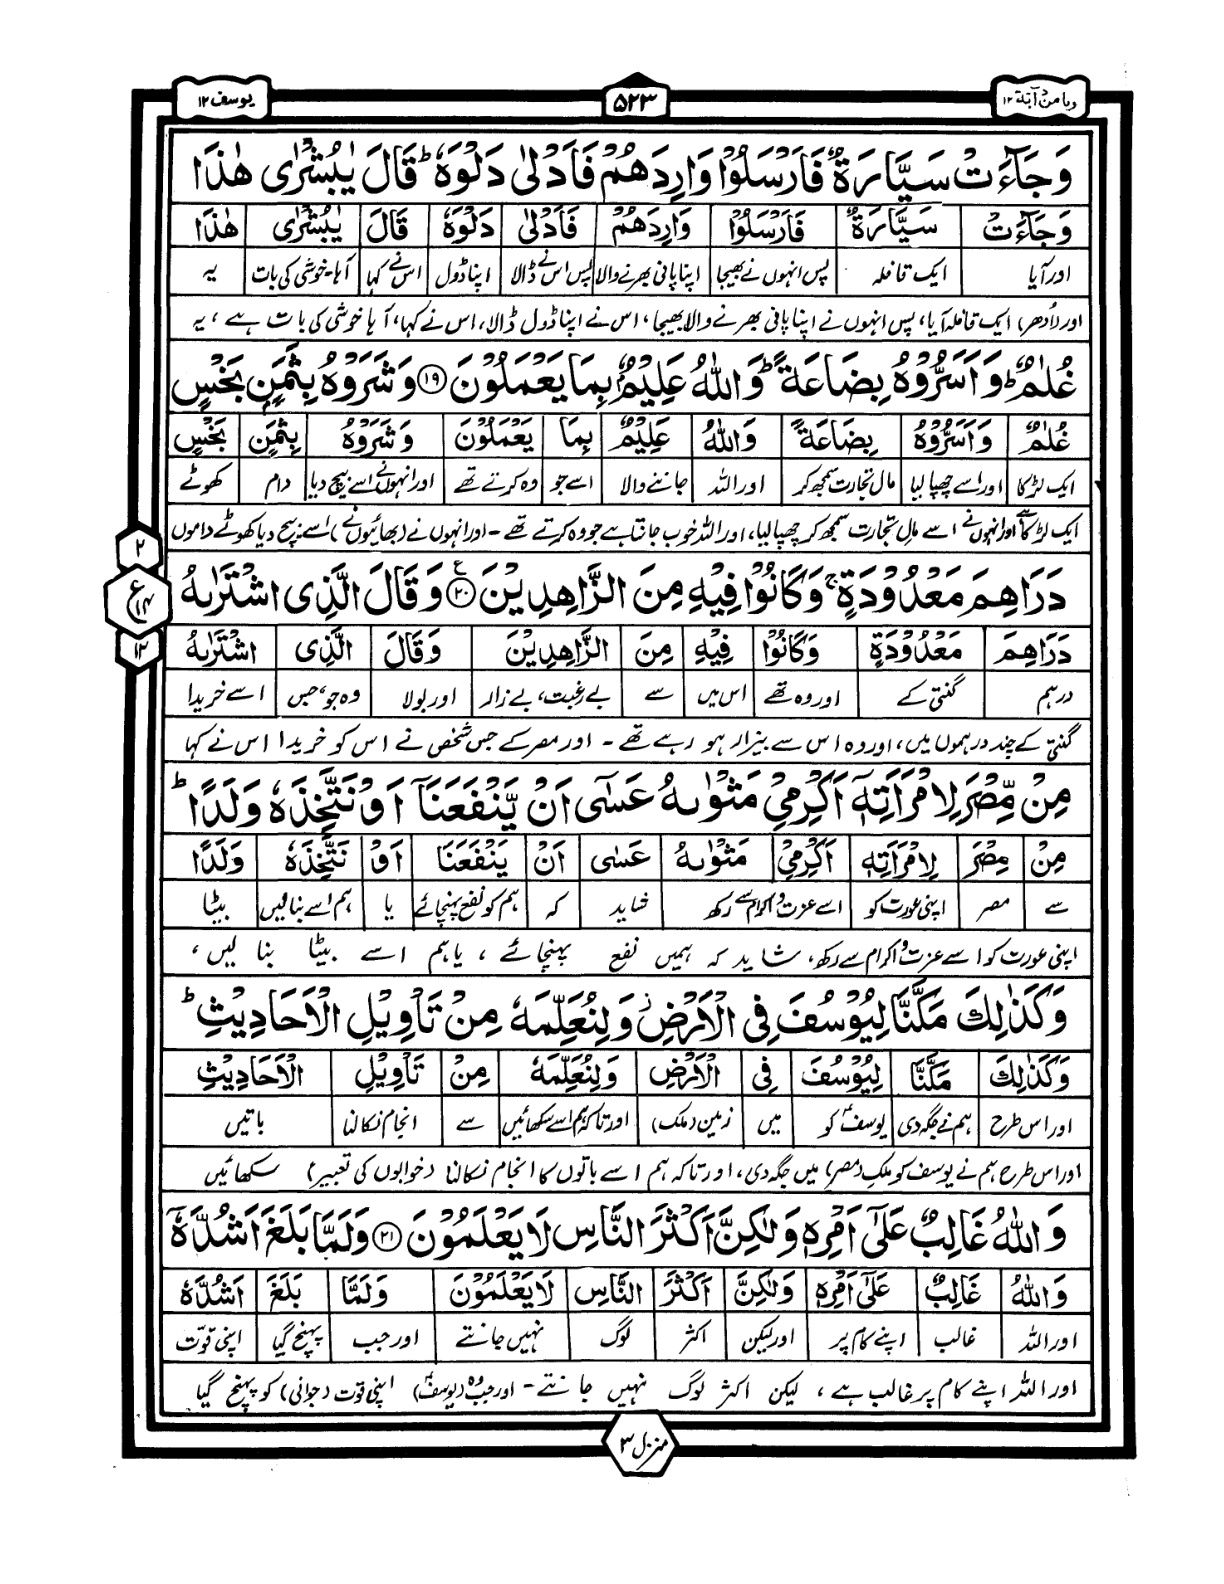 وما من دآبة ۱۲
۵۲۳
یوسف ۱۲
وَجَآءَتْ سَیَّارَةٌ فَاَرْسَلُوْا وَارِدَهُمْ فَاَدْلٰی دَلْوَهٗ ؕ قَالَ یٰبُشْرٰی هٰذَا
وَجَآءَتْ سَیَّارَةٌ فَاَرْسَلُوْا وَارِدَهُمْ فَاَدْلٰی دَلْوَهٗ قَالَ یٰبُشْرٰی هٰذَا
اور آیا ایک قافلہ پس انہوں نے بھیجا اپنا پانی بھرنے والا پس اس نے ڈالا اپنا ڈول اس نے کہا آہا۔خوشی کی بات یہ
اور (اُدھر) ایک قافلہ آیا، پس انہوں نے اپنا پانی بھرنے والا بھیجا، اس نے اپنا ڈول ڈالا، اس نے کہا، آہا خوشی کی بات ہے ، یہ
غُلٰمٌ ؕ وَاَسَرُّوْهُ بِضَاعَةً ؕ وَاللّٰهُ عَلِیْمٌۢ بِمَا یَعْمَلُوْنَ ۱۹ وَشَرَوْهُ بِثَمَنٍۭ بَخْسٍ
غُلٰمٌ وَاَسَرُّوْهُ بِضَاعَةً وَاللّٰهُ عَلِیْمٌ بِمَا یَعْمَلُوْنَ وَشَرَوْهُ بِثَمَنٍ بَخْسٍ
ایک لڑکا اور اسے چھپا لیا مال تجارت سمجھ کر اور اللہ جاننے والا اسے جو وہ کرتے تھے اور انہوں نے اسے بیچ دیا دام کھوٹے
ایک لڑکا ہے اور انہوں نے اسے مالِ تجارت سمجھ کر چھپا لیا، اور اللہ خوب جانتا ہے جو وہ کرتے تھے ۔ اور انہوں نے (بھائیوں نے) اسے بیچ دیا کھوٹے داموں
۲
ع
۱۴
۱۲
دَرَاهِمَ مَعْدُوْدَةٍ ۚ وَكَانُوْا فِیْهِ مِنَ الزَّاهِدِیْنَ ۲۰ ع وَقَالَ الَّذِی اشْتَرٰىهُ
دَرَاهِمَ مَعْدُوْدَةٍ وَكَانُوْا فِیْهِ مِنَ الزَّاهِدِیْنَ وَقَالَ الَّذِی اشْتَرٰىهُ
درہم گنتی کے اور وہ تھے اس میں سے بے رغبت، بے زار اور بولا وہ جو، جس اسے خریدا
گنتی کے چند درہموں میں، اور وہ اس سے بیزار ہو رہے تھے ۔ اور مصر کے جس شخص نے اس کو خریدا اس نے کہا
مِنْ مِّصْرَ لِامْرَاَتِهٖۤ اَكْرِمِیْ مَثْوٰىهُ عَسٰۤی اَنْ یَّنْفَعَنَاۤ اَوْ نَتَّخِذَهٗ وَلَدًا ؕ
مِنْ مِصْرَ لِامْرَاَتِهٖ اَكْرِمِیْ مَثْوٰىهُ عَسٰی اَنْ یَنْفَعَنَا اَوْ نَتَّخِذَهٗ وَلَدًا
سے مصر اپنی عورت کو اسے عزت و اکرام سے رکھ شاید کہ ہم کو نفع پہنچائے یا ہم اسے بنا لیں بیٹا
اپنی عورت کو اسے عزت و اکرام سے رکھ، شاید کہ ہمیں نفع پہنچائے ، یا ہم اسے بیٹا بنا لیں ،
وَكَذٰلِكَ مَكَّنَّا لِیُوْسُفَ فِی الْاَرْضِ ۫ وَلِنُعَلِّمَهٗ مِنْ تَاْوِیْلِ الْاَحَادِیْثِ ؕ
وَكَذٰلِكَ مَكَّنَّا لِیُوْسُفَ فِی الْاَرْضِ وَلِنُعَلِّمَهٗ مِنْ تَاْوِیْلِ الْاَحَادِیْثِ
اور اس طرح ہم نے جگہ دی یوسفؑ کو میں زمین (ملک) اور تاکہ ہم اسے سکھائیں سے انجام نکالنا باتیں
اور اس طرح ہم نے یوسف کو ملکِ (مصر) میں جگہ دی، اور تاکہ ہم اسے باتوں کا انجام نکالنا (خوابوں کی تعبیر) سکھائیں
وَاللّٰهُ غَالِبٌ عَلٰۤی اَمْرِهٖ وَلٰكِنَّ اَكْثَرَ النَّاسِ لَا یَعْلَمُوْنَ ۲۱ وَلَمَّا بَلَغَ اَشُدَّهٗۤ
وَاللّٰهُ غَالِبٌ عَلٰۤی اَمْرِهٖ وَلٰكِنَّ اَكْثَرَ النَّاسِ لَا یَعْلَمُوْنَ وَلَمَّا بَلَغَ اَشُدَّهٗ
اور اللہ غالب اپنے کام پر اور لیکن اکثر لوگ نہیں جانتے اور جب پہنچ گیا اپنی قوّت
اور اللہ اپنے کام پر غالب ہے ، لیکن اکثر لوگ نہیں جانتے ۔ اور جب وہ (یوسفؑ) اپنی قوت (جوانی) کو پہنچ گیا
منزل ۳